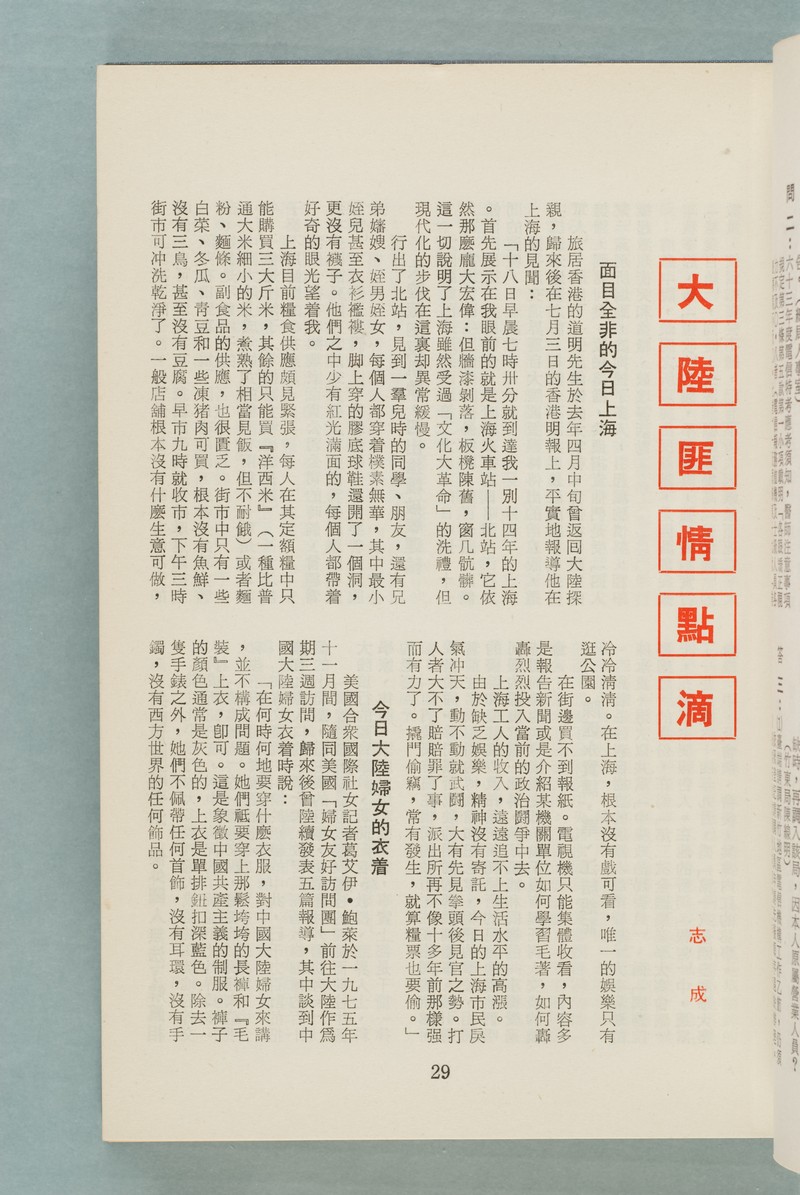 大陸匪情點滴
志成
面目全非的今日上海
旅居香港的道明先生於去年四月中旬曾返囘大陸探
親，歸來後在七月三日的香港明報上，平實地報導他在
上海的見聞：
「十八日早晨七時卅分就到達我一別十四年的上海
。首先展示在我眼前的就是上海火車站——北站，它依
然那麽龐大宏偉：但牆漆剝落，板櫈陳舊，窗几骯髒。
這一切說明了上海雖然受過「文化大革命」的洗禮，但
現代化的步伐在這裏却異常緩慢。
行出了北站，見到一羣兒時的同學、朋友，還有兄
弟嬸嫂、姪男姪女，每個人都穿着樸素無華，其中最小
姪兒甚至衣衫襤褸，脚上穿的膠底球鞋還開了一個洞，
更沒有襪子。他們之中少有紅光滿面的，每個人都帶着
好奇的眼光望着我。
上海目前糧食供應頗見緊張，每人在其定額糧中只
能購買三大斤米，其餘的只能買『洋西米』（一種比普
通大米細小的米，煮熟了相當見飯，但不耐餓）或者麵
粉、麵條。副食品的供應，也很匱乏。街市中只有一些
白菜、冬瓜、青豆和一些凍猪肉可買，根本沒有魚鮮、
沒有三鳥，甚至沒有豆腐。早市九時就收市，下午三時
街市可冲洗乾淨了。一般店舖根本沒有什麽生意可做，
冷冷淸淸。在上海，根本沒有戲可看，唯一的娛樂只有
逛公園。
在街邊買不到報紙。電視機只能集體收看，內容多
是報告新聞或是介紹某機關單位如何學習毛著，如何轟
轟烈烈投入當前的政治鬪爭中去。
上海工人的收入，遠遠追不上生活水平的高漲。
由於缺乏娛樂，精神沒有寄託，今日的上海市民戾
氣冲天，動不動就武鬪，大有先見拳頭後見官之勢。打
人者大不了賠賠罪了事，派出所再不像十多年前那樣强
而有力了。撬門偷竊，常有發生，就算糧票也要偷。」
今日大陸婦女的衣着
美國合衆國際社女記者葛艾伊•鮑萊於一九七五年
十一月間，隨同美國「婦女友好訪問團」前往大陸作爲
期三週訪問，歸來後曾陸續發表五篇報導，其中談到中
國大陸婦女衣着時說：
「在何時何地要穿什麽衣服，對中國大陸婦女來講
，並不構成問題。她們祗要穿上那鬆垮垮的長褲和『毛
裝』上衣，卽可。這是象徵中國共產主義的制服。褲子
的顏色通常是灰色的，上衣是單排鈕扣深藍色。除去一
隻手錶之外，她們不佩帶任何首飾，沒有耳環，沒有手
鐲，沒有西方世界的任何飾品。
29